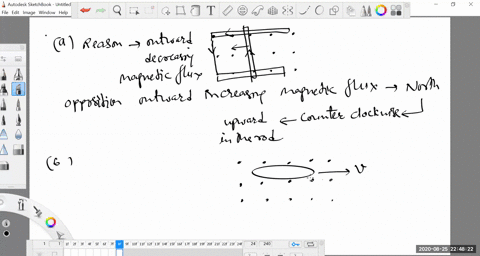 Autodesk SketchBook - Untitled
File Edit Image Window Help
(a) Reason → outward
decreasing
magnetic flux
opposition outward increasing magnetic flux → North
upward ← Counter clockwise ←
in the rod
(b)
→ v
2020-08-25 22:48:22